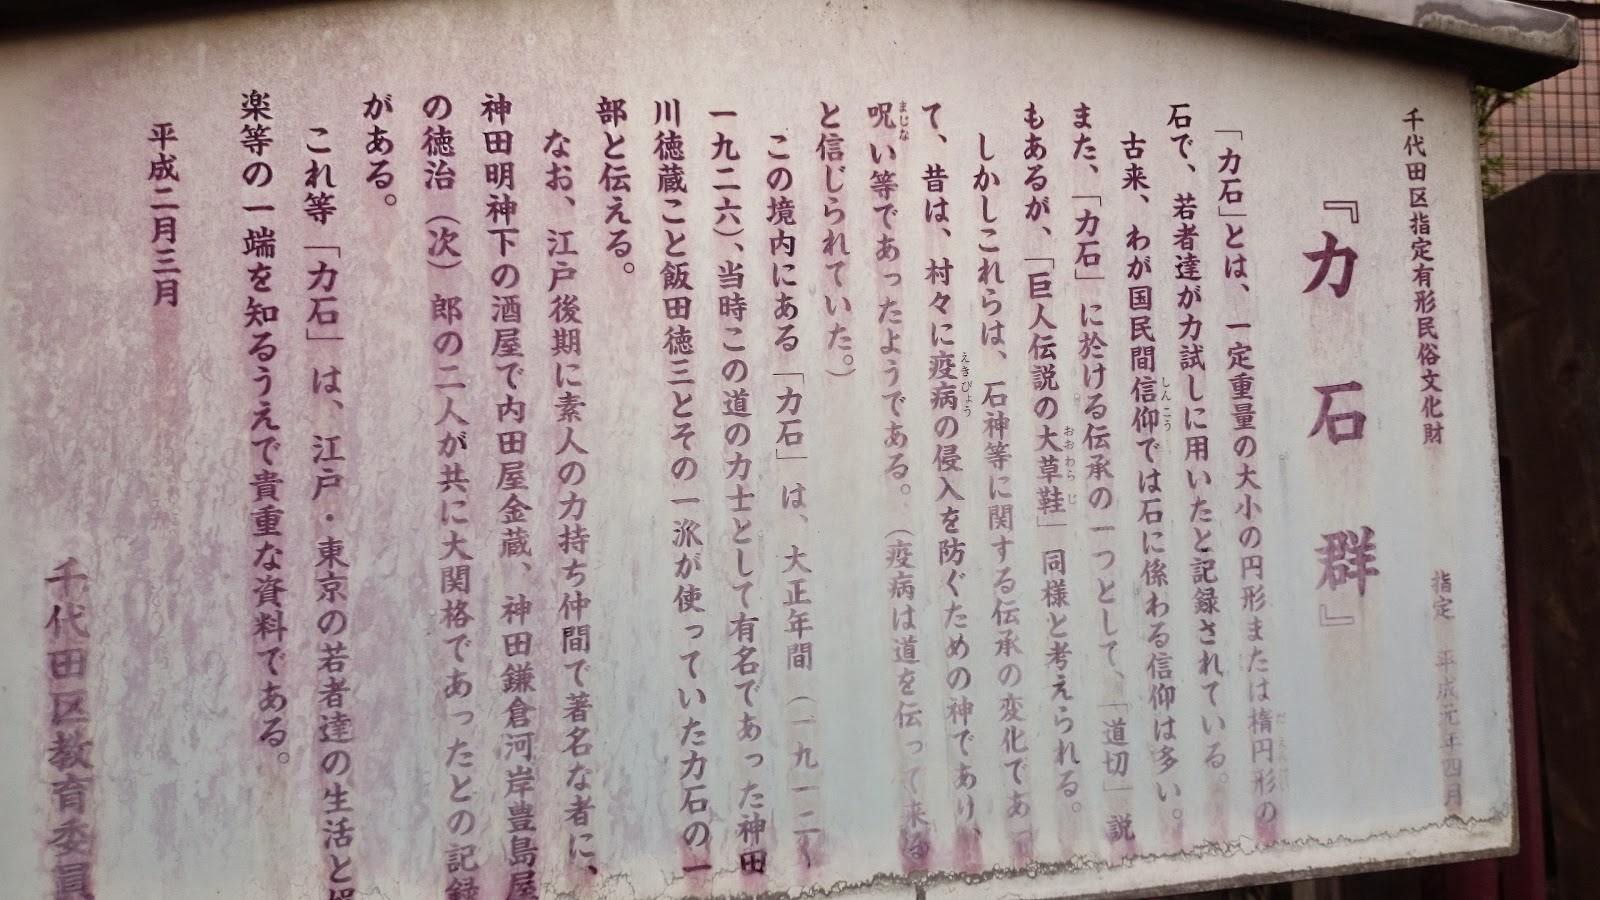 千代田区指定有形民俗文化財
指定 平成元年四月
『力石群』
「力石」とは、一定重量の大小の円形または楕円形の
石で、若者達が力試しに用いたと記録されている。
古来、わが国民間信仰では石に係わる信仰は多い。
また、「力石」に於ける伝承の一つとして、「道切」説
もあるが、「巨人伝説の大草鞋」同様と考えられる。
しかしこれらは、石神等に関する伝承の変化であっ
て、昔は、村々に疫病の侵入を防ぐための神であり、
呪い等であったようである。(疫病は道を伝って来る
と信じられていた。)
この境内にある「力石」は、大正年間(一九一二〜
一九二六)、当時この道の力士として有名であった神田
川徳蔵こと飯田徳三とその一派が使っていた力石の一
部と伝える。
なお、江戸後期に素人の力持ち仲間で著名な者に、
神田明神下の酒屋で内田屋金蔵、神田鎌倉河岸豊島屋
の徳治(次)郎の二人が共に大関格であったとの記録
がある。
これ等「力石」は、江戸・東京の若者達の生活と
楽等の一端を知るうえで貴重な資料である。
平成二月三月
千代田区教育委員